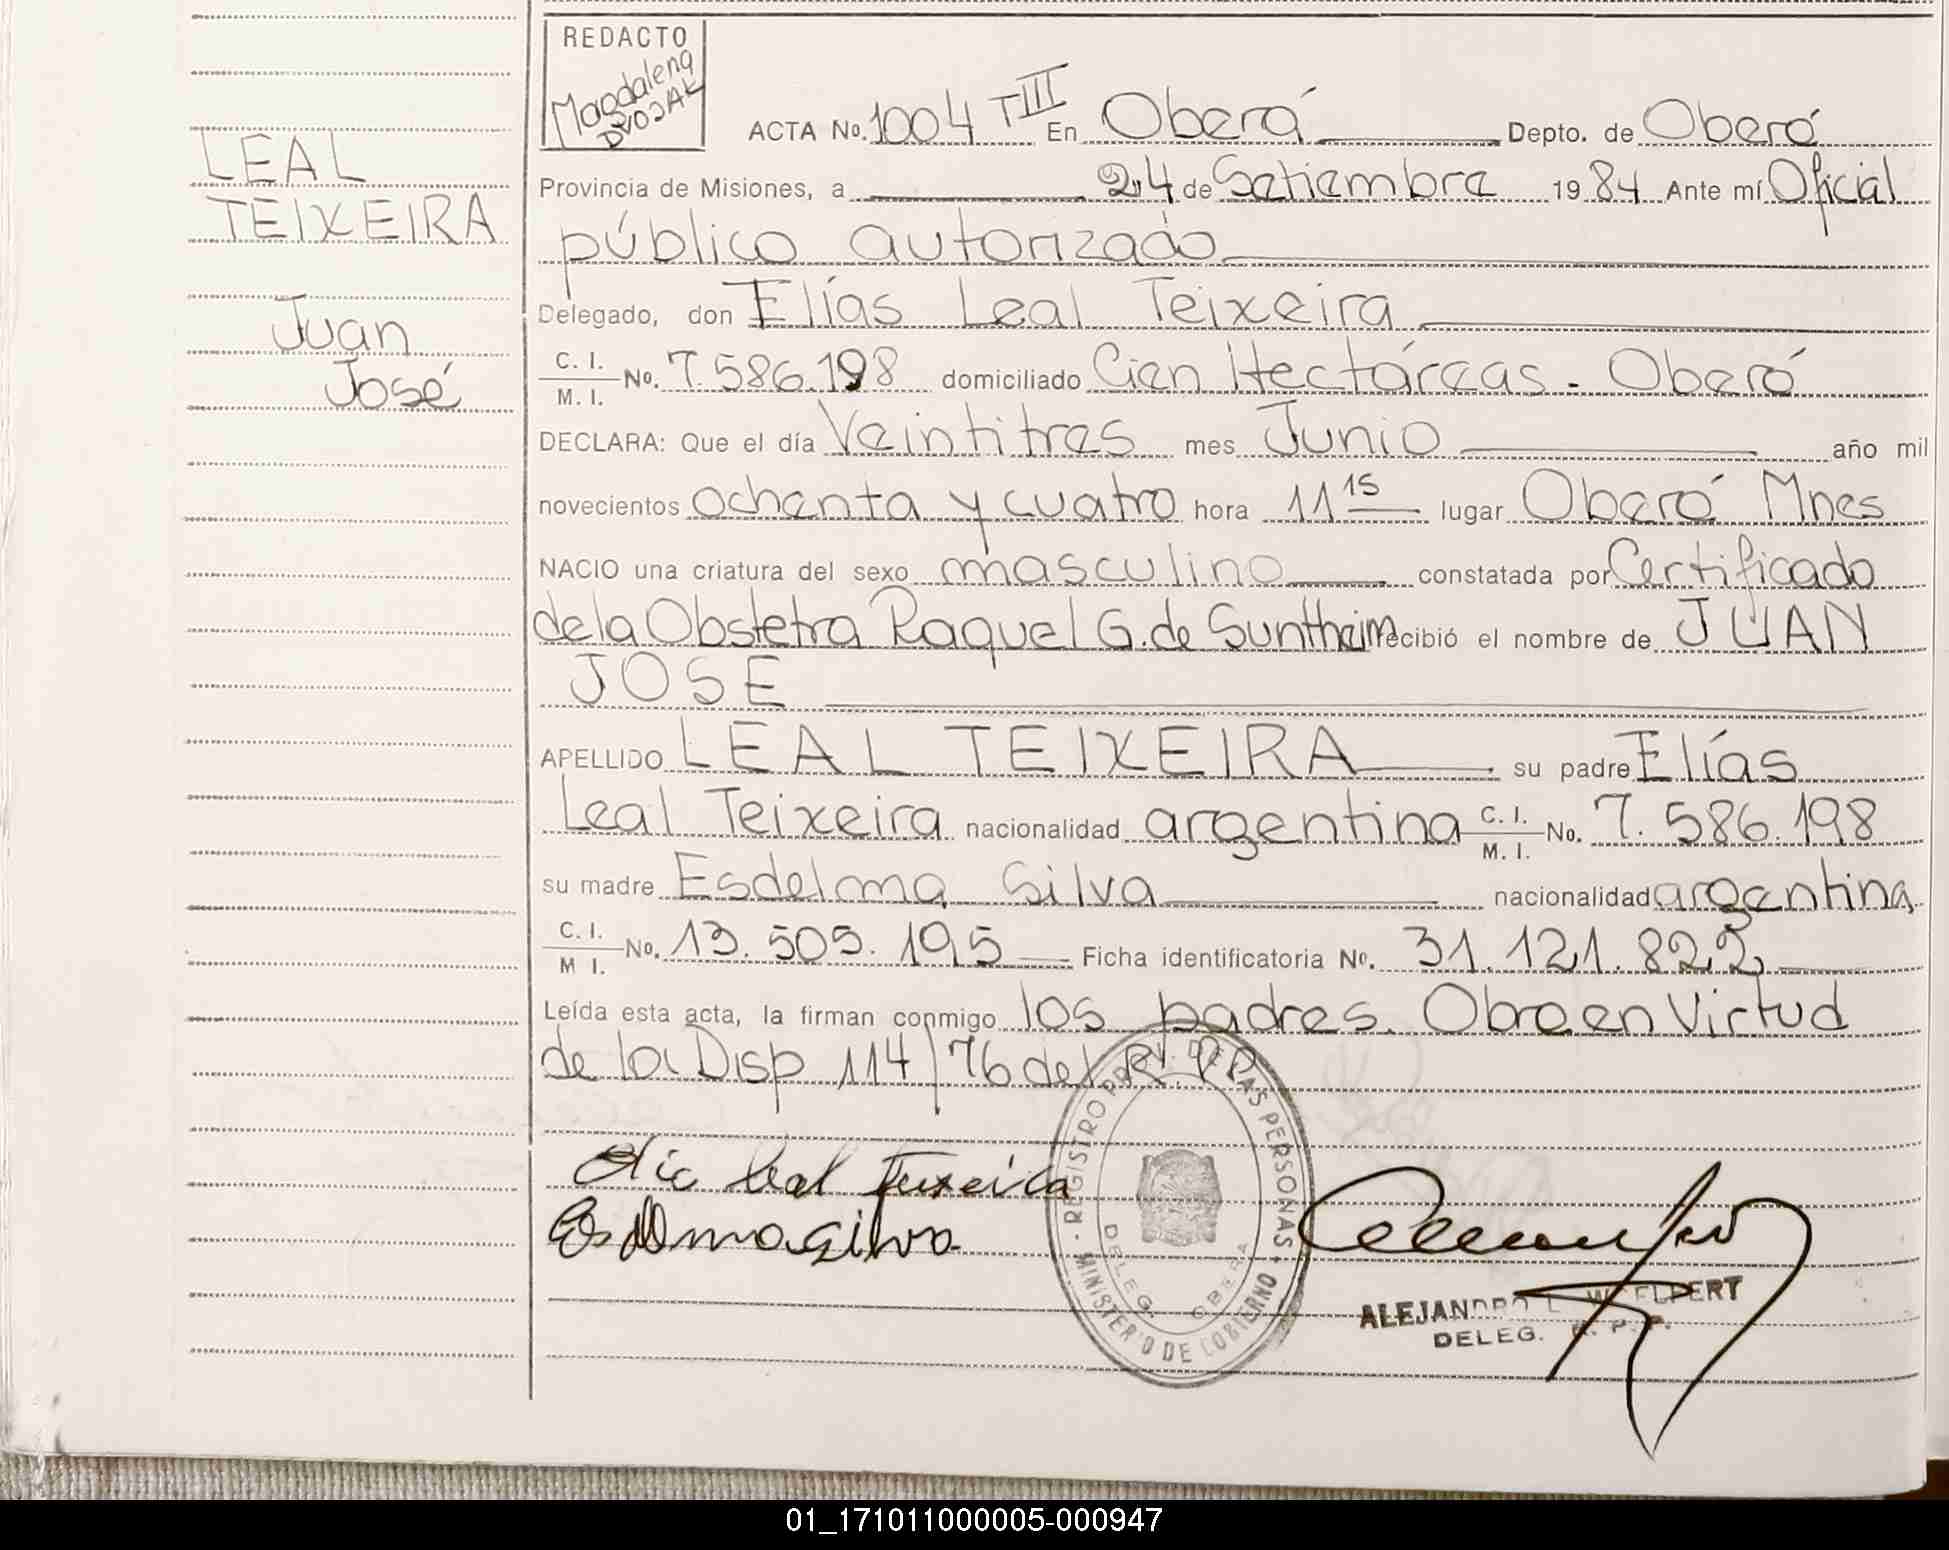 REDACTO
Magdalena
DVOJAK
ACTA No. 1004 TIII En Oberá Depto. de Oberá
LEAL
TEIXEIRA
Juan
José
Provincia de Misiones, a 24 de Setiembre 1984 Ante mí Oficial
público autorizado
Delegado, don Elías Leal Teixeira
C. I.
M. I. No. 7.586.198 domiciliado Cien Hectáreas - Oberá
DECLARA: Que el día Veintitres mes Junio año mil
novecientos ochenta y cuatro hora 11 15 lugar Oberá Mnes
NACIO una criatura del sexo masculino constatada por Certificado
de la Obstetra Raquel G. de Suntheim recibió el nombre de JUAN
JOSE
APELLIDO LEAL TEIXEIRA su padre Elías
Leal Teixeira nacionalidad argentina C. I. M. I. No. 7.586.198
su madre Esdelma Silva nacionalidad argentina,
C. I.
M I. No. 13.505.195 Ficha identificatoria No. 31.121.822
Leída esta acta, la firman conmigo los padres. Obra en Virtud
de la Disp 114/76 del R. PP.
REGISTRO PROV. DE LAS PERSONAS
MINISTERIO DE GOBIERNO
DELEG. OBERA
Leal Teixeira
Esdelma Silva
ALEJANDRO L. WELPERT
DELEG. R. P. P.
01_171011000005-000947